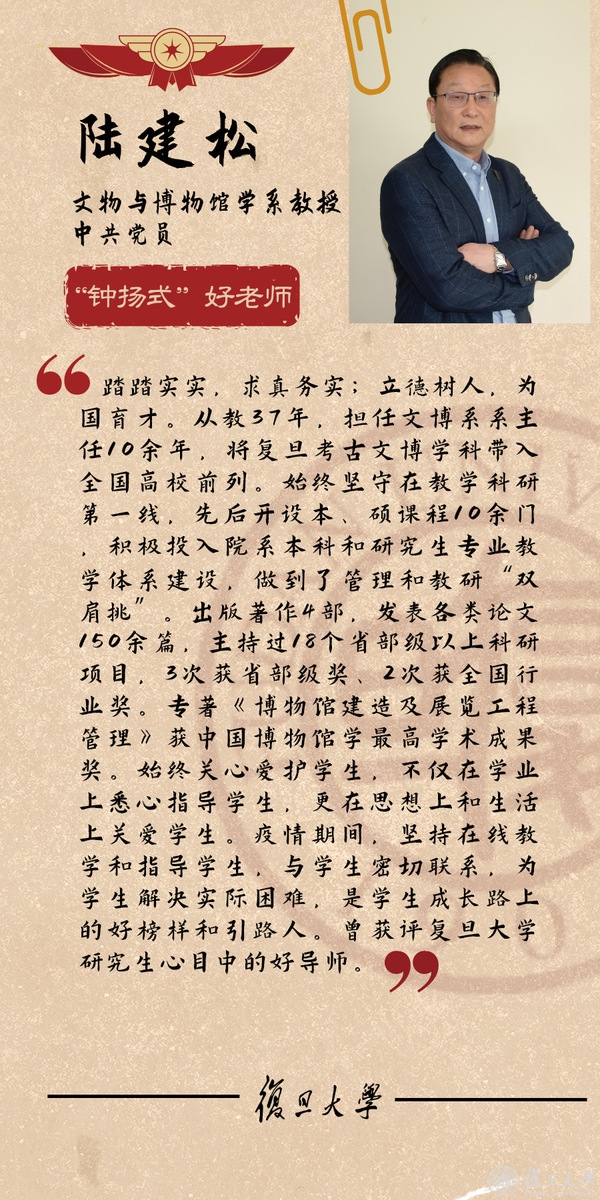 陆建松
文物与博物馆学系教授
中共党员
“钟扬式”好老师
踏踏实实，求真务实；立德树人，为
国育才。从教37年，担任文博系系主
任10余年，将复旦考古文博学科带入
全国高校前列。始终坚守在教学科研
第一线，先后开设本、硕课程10余门
，积极投入院系本科和研究生专业教
学体系建设，做到了管理和教研“双
肩挑”。出版著作4部，发表各类论文
150余篇，主持过18个省部级以上科研
项目，3次获省部级奖、2次获全国行
业奖。专著《博物馆建造及展览工程
管理》获中国博物馆学最高学术成果
奖。始终关心爱护学生，不仅在学业
上悉心指导学生，更在思想上和生活
上关爱学生。疫情期间，坚持在线教
学和指导学生，与学生密切联系，为
学生解决实际困难，是学生成长路上
的好榜样和引路人。曾获评复旦大学
研究生心目中的好导师。
復旦大學